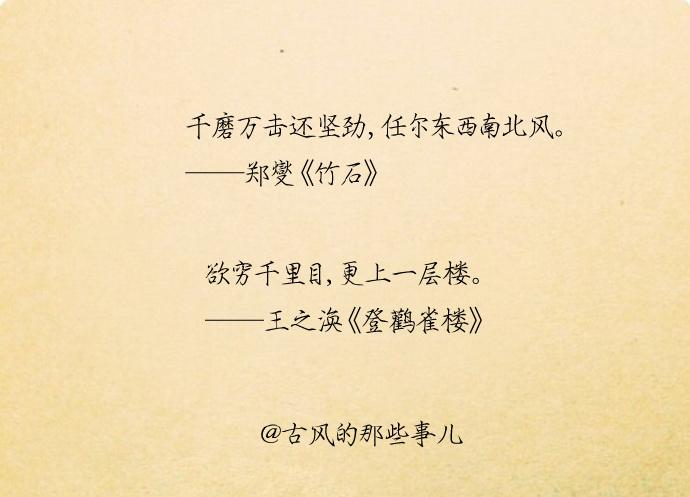 千磨万击还坚劲，任尔东西南北风。
——郑燮《竹石》
欲穷千里目，更上一层楼。
——王之涣《登鹳雀楼》
@古风的那些事儿